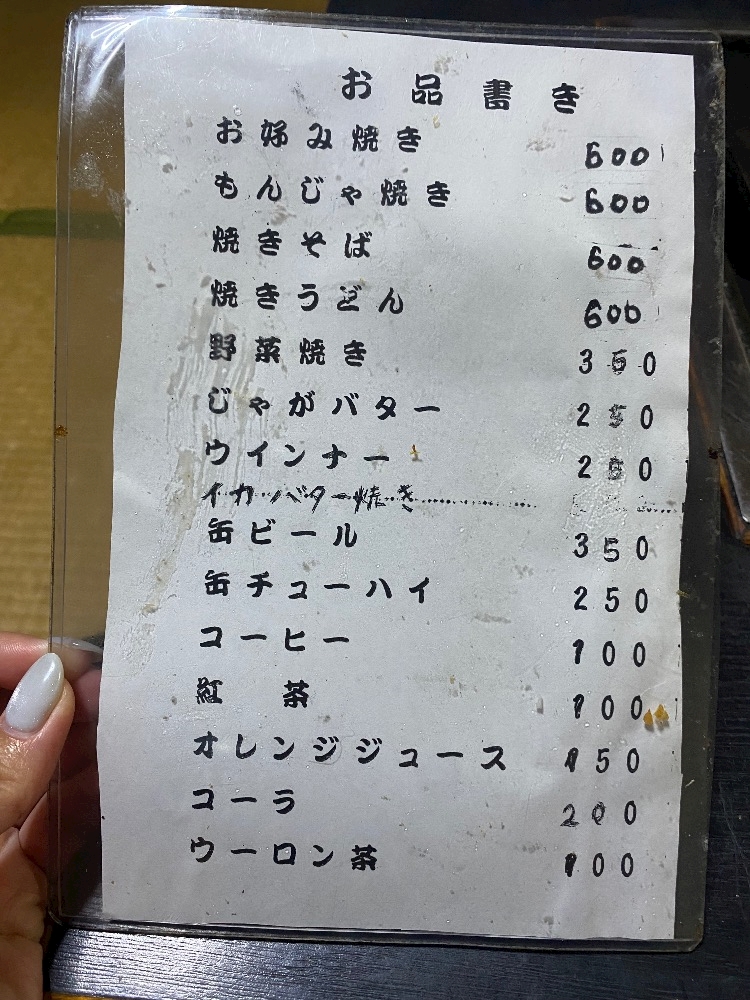 お品書き
お好み焼き 600
もんじゃ焼き 600
焼きそば 600
焼きうどん 600
野菜焼き 350
じゃがバター 250
ウインナー 250
イカバター焼き
缶ビール 350
缶チューハイ 250
コーヒー 100
紅 茶 100
オレンジジュース 150
コーラ 200
ウーロン茶 100